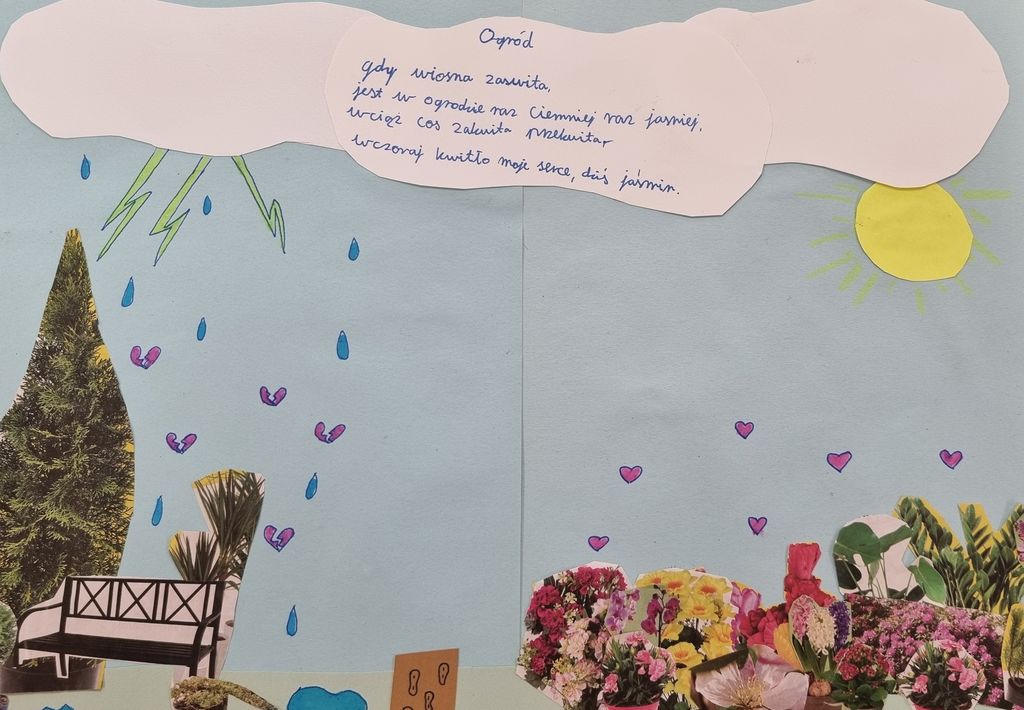 Ogród
gdy wiosna zaswita,
jest w ogrodzie raz ciemniej raz jasniej,
wciąż cos zakwita przekwita,
wczoraj kwitło moje serce, dziś jaśmin.